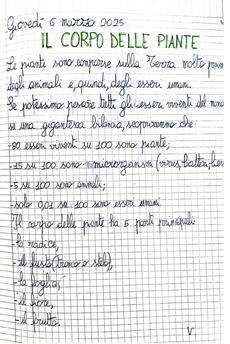 Giovedì 6 marzo 2025
IL CORPO DELLE PIANTE
Le piante sono comparse sulla Terra molto prima
degli animali e, quindi, degli esseri umani.
Se potessimo pesare tutti gli esseri viventi del mondo
su una gigantesca bilancia, scopriremmo che:
-80 esseri viventi su 100 sono piante;
-15 su 100 sono microrganismi (virus, batteri,
-5 su 100 sono animali;
-solo 0,01 su 100 sono esseri umani.
Il corpo delle piante ha 5 parti principali:
-la radice,
-il fusto (tronco o stelo),
-la foglia,
-il fiore,
-il frutto.
V